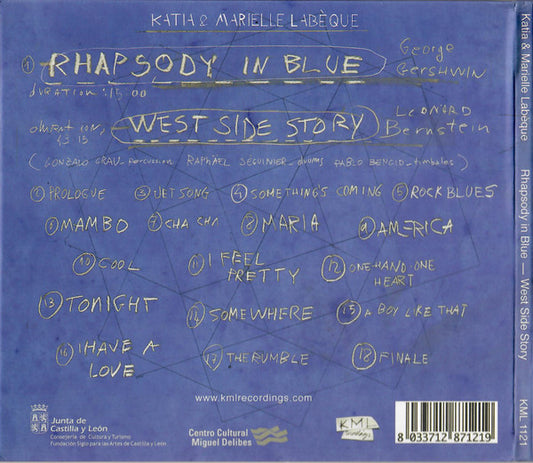 KATIA & MARIELLE LABÈQUE
1 RHAPSODY IN BLUE George Gershwin
duration: 15 00
WEST SIDE STORY Leonard Bernstein
43 15
(GONZALO GRAU_percussion RAPHAËL SEGUINIER_drums PABLO BENCID_timbales)
2 PROLOGUE 3 JET SONG 4 SOMETHING'S COMING 5 ROCK BLUES
6 MAMBO 7 CHA CHA 8 MARIA 9 AMERICA
10 COOL 11 I FEEL PRETTY 12 ONE HAND-ONE HEART
13 TONIGHT 14 SOMEWHERE 15 A BOY LIKE THAT
16 I HAVE A LOVE 17 THE RUMBLE 18 FINALE
www.kmlrecordings.com
Junta de
Castilla y León
Consejería de Cultura y Turismo
Fundación Siglo para las Artes de Castilla y León
Centro Cultural
Miguel Delibes
KML
recordings
8 033712 871219
Katia & Marielle Labèque Rhapsody in Blue — West Side Story KML 1121